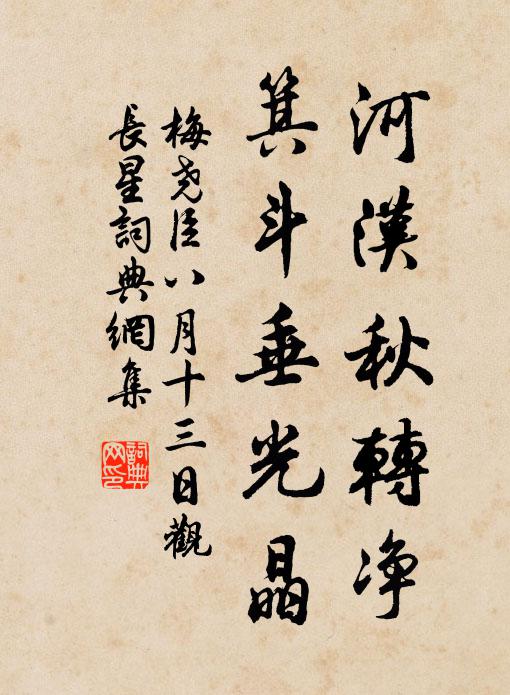 河漢秋轉净
箕斗垂光晶
梅尧臣八月十三日觀
長星詞典網集
詞典网印